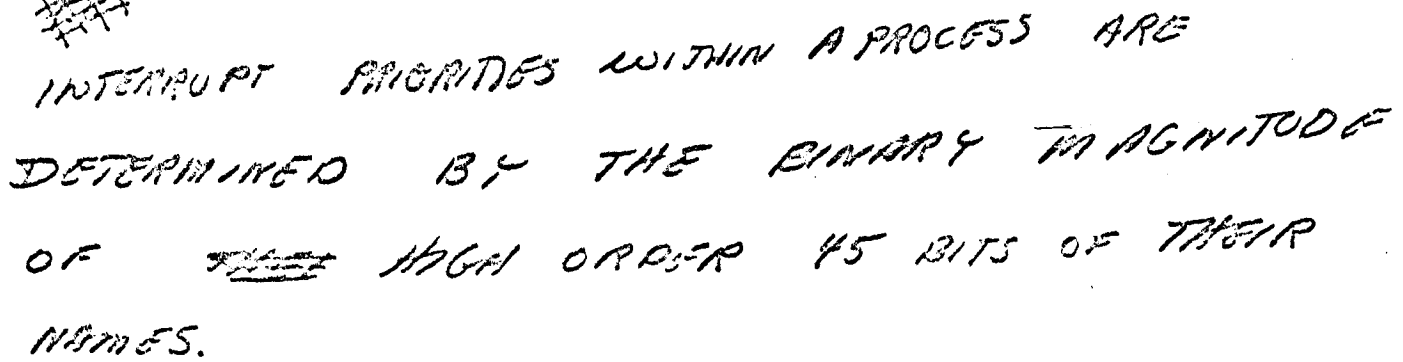 INTERRUPT PRIORITIES WITHIN A PROCESS ARE
DETERMINED BY THE BINARY MAGNITUDE
OF HIGH ORDER 45 BITS OF THEIR
NAMES.